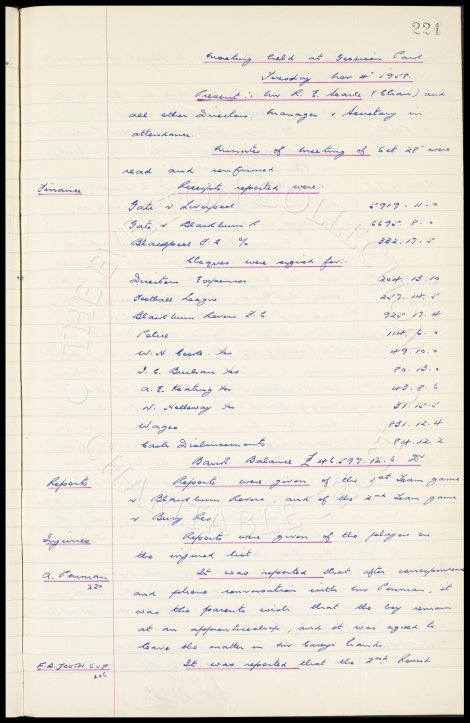 224
Meeting held at Goodison Park
Tuesday Nov 4th 1958.
Present:- Mr R. E. Searle (Chair) and
all other Directors, Manager & Secretary in
attendance.
Minutes of Meeting of Oct 28th were
read and confirmed
Finance Receipts reported were:-
Gate v Liverpool 5919.11.0
Gate v Blackburn R 6695.8.0
Blackpool F.C. %
Cheques were signed for:-
Directors Expenses 204.13.10
Football League 257.14.5
Blackburn Rovers F.C 925.17.4
Police 114.6.0
W.H. Cooke 49.10.0
80.13.0
A.E. Keating 43.8.6
N. Holloway 31.15.5
Wages 831.12.4
Cash Disbursements 84.12.2
Bank Balance £46597.12.6 Dr
Reports Reports were given of the 1st Team game
v Blackburn Rovers, and of the 2nd Team game
v Bury Res.
Injuries Reports were given of the players on
the injured list.
A. Penman It was reported that after correspondence
220 and phone conversation with Mr Penman, it
was the parents wish that the boy remain
at an apprenticeship, and it was agreed to
leave the matter in Mr Careys hands.
F.A. YOUTH CUP It was reported that the 2nd Round
206
THE EVERTON COLLECTION
CHARITABLE